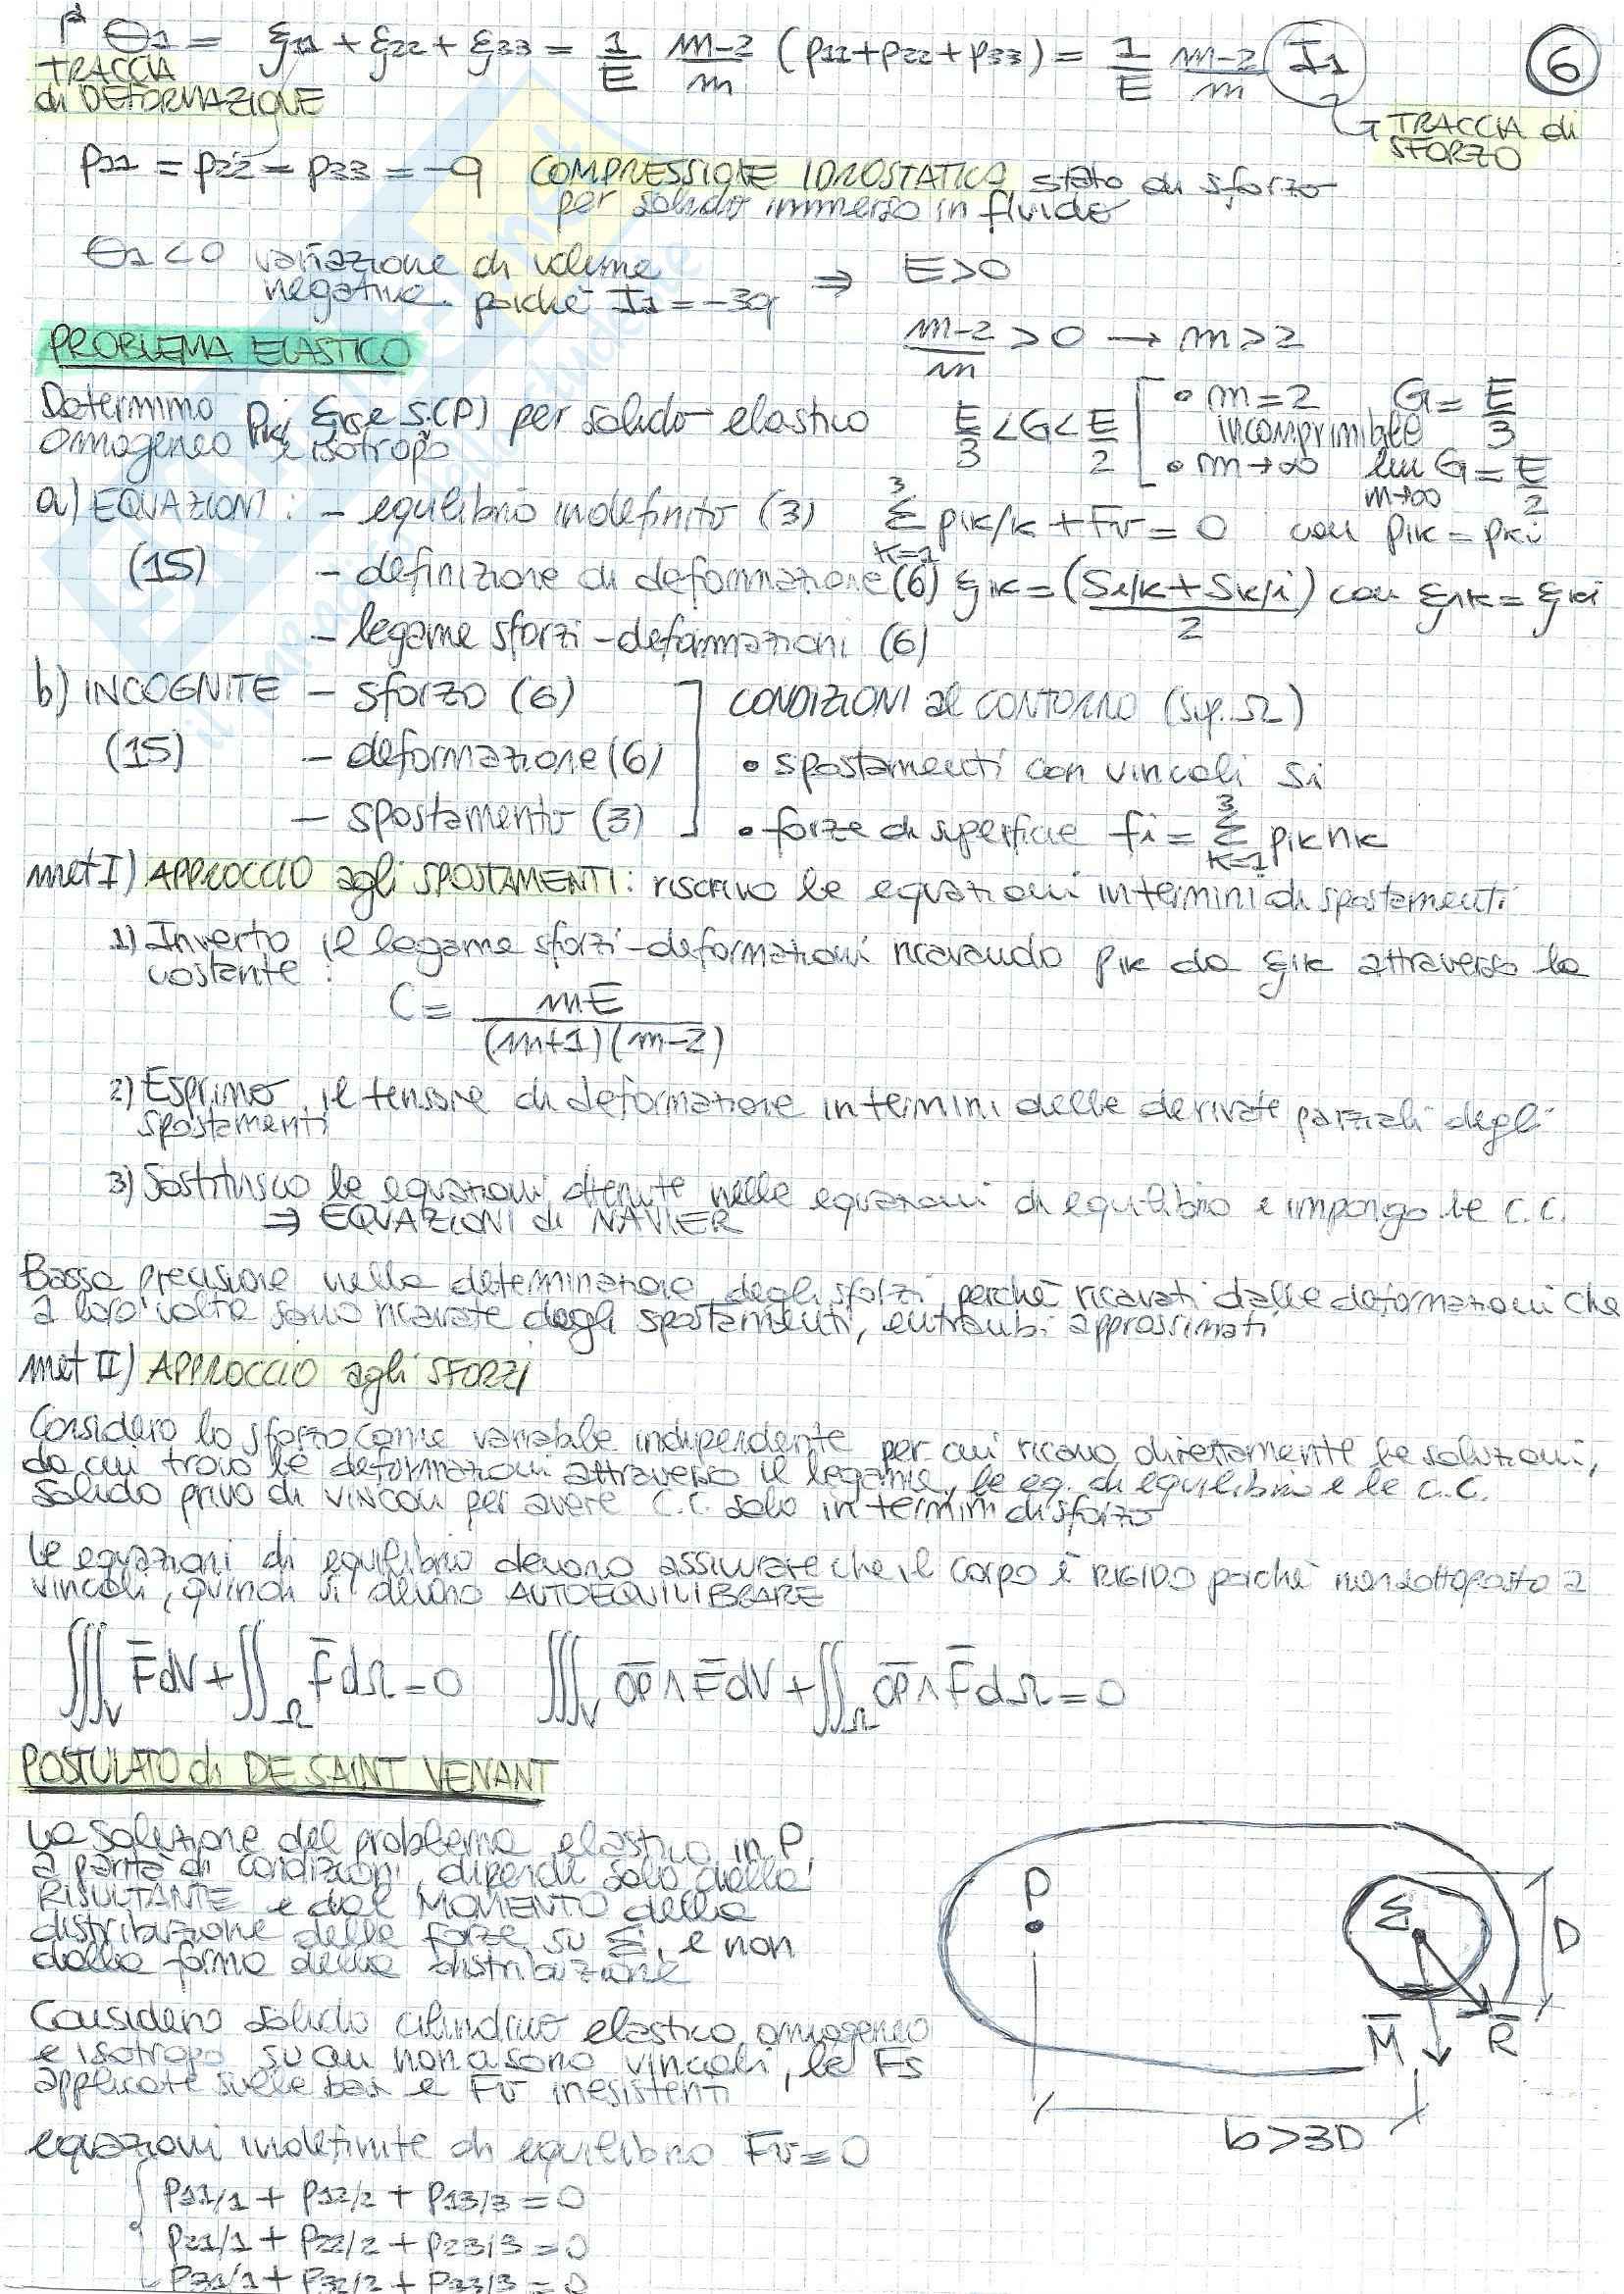 Θ1 = ξ11 + ξ22 + ξ33 = 1/E m-2/m (p11+p22+p33) = 1/E m-2/m I1
6
TRACCIA
di DEFORMAZIONE
TRACCIA di
SFORZO
p11 = p22 = p33 = -q COMPRESSIONE IDROSTATICA, stato di sforzo
per solido immerso in fluido
Θ1 < 0 variazione di volume
negativa. poiché I1 = -3q ⇒ E>0
m-2/m > 0 → m>2
PROBLEMA ELASTICO
Determino pik, ξik e Si(P) per solido elastico
omogeneo e isotropo
E/3 < G < E/2
• m=2 G= E/3
incomprimibile
• m→∞ lim G = E/2
m→∞
a) EQUAZIONI: - equilibrio indefinito (3) 3Σk=1 pik/k + Fv = 0 con pik = pki
(15) - definizione di deformazione (6) ξik = (Si/k + Sk/i)/2 con ξik = ξki
- legame sforzi-deformazioni (6)
b) INCOGNITE - sforzo (6)
(15) - deformazione (6)
- spostamento (3)
CONDIZIONI al CONTORNO (Sup. Ω)
• spostamenti con vincoli si
• forze di superficie fi = 3Σk=1 pik nk
met I) APPROCCIO agli SPOSTAMENTI: riscrivo le equazioni in termini di spostamenti
1) Inverto il legame sforzi-deformazioni ricavando pik da ξik attraverso la
costante:
C = mE/(m+1)(m-2)
2) Esprimo il tensore di deformazione in termini delle derivate parziali degli
spostamenti
3) Sostituisco le equazioni ottenute nelle equazioni di equilibrio e impongo le C.C.
⇒ EQUAZIONI di NAVIER
Bassa precisione nella determinazione degli sforzi perché ricavati dalle deformazioni che
a loro volta sono ricavate dagli spostamenti, entrambi approssimati
met II) APPROCCIO agli SFORZI
Considero lo sforzo come variabile indipendente per cui ricavo direttamente le soluzioni,
da cui trovo le deformazioni attraverso il legame, le eq. di equilibrio e le C.C.
Solido privo di vincoli per avere C.C. solo in termini di sforzo
Le equazioni di equilibrio devono assicurare che il corpo è RIGIDO poiché non sottoposto a
vincoli, quindi si devono AUTOEQUILIBRARE
∭V F̄dV + ∬Ω f̄dΩ = 0 ∭V OP∧F̄dV + ∬Ω OP∧F̄dΩ = 0
POSTULATO di DE SAINT VENANT
La soluzione del problema elastico in P,
a parità di condizioni, dipende solo dalla
RISULTANTE e dal MOMENTO della
distribuzione delle forze su Σ, e non
dalla forma della distribuzione
P
Σ
D
M̄
R̄
b>3D
Considero solido cilindrico elastico omogeneo
e isotropo su cui non ci sono vincoli, le Fs
applicate sulle basi e Fv inesistenti
equazioni indefinite di equilibrio Fv = 0
p11/1 + p12/2 + p13/3 = 0
p21/1 + p22/2 + p23/3 = 0
p31/1 + p32/2 + p33/3 = 0